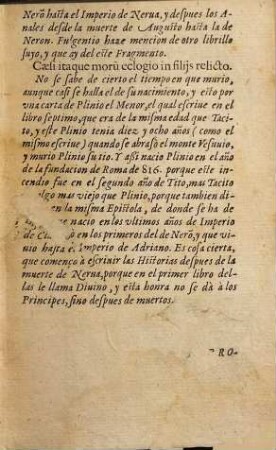 Nerõ hasta el Imperio de Nerua, y despues los A-
nales desde la muerte de Augusto hasta la de
Neron. Fulgentio haze mencion de otro librillo
suyo, y que ay del este Fragmento.
Cæsi itaque morũ eclogio in filijs relicto.
No se sabe de cierto el tiempo en que murio,
aunque casi se halla el de su nacimiento, y esto por
vna carta de Plinio el Menor, el qual escriue en el
libro septimo, que era de la misma edad que Taci-
to, y este Plinio tenia diez y ocho años (como el
mismo escriue) quando se abrasò el monte Vesuuio,
y murio Plinio su tio. Y assi nacio Plinio en el año
de la fundacion de Roma de 816. porque este in-
cendio fue en el segundo año de Tito, mas Tacito
algo mas viejo que Plinio, porque tambien di-
en la misma Epistola, de donde se ha de
nacio en los vltimos años de Imperio
de en los primeros del de Nerõ, y que vi-
uio hasta e Imperio de Adriano. Es cosa cierta,
que començò a escriuir las Historias despues de la
muerte de Nerua, porque en el primer libro del-
las le llama Diuino, y esta honra no se dà à los
Principes, sino despues de muertos.
RO-